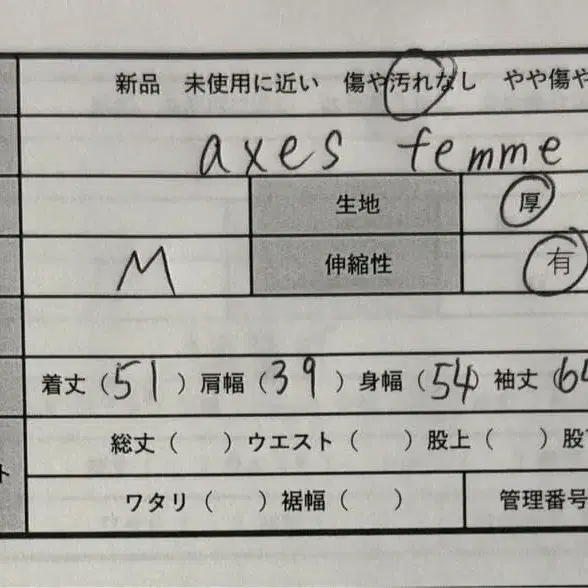 新品 未使用に近い 傷や汚れなし やや傷や
axes femme
生地 厚
M 伸縮性 有
着丈（51）肩幅（39）身幅（54）袖丈（64
総丈（ ）ウエスト（ ）股上（ ）股下
ト
ワタリ（ ）裾幅（ ） 管理番号